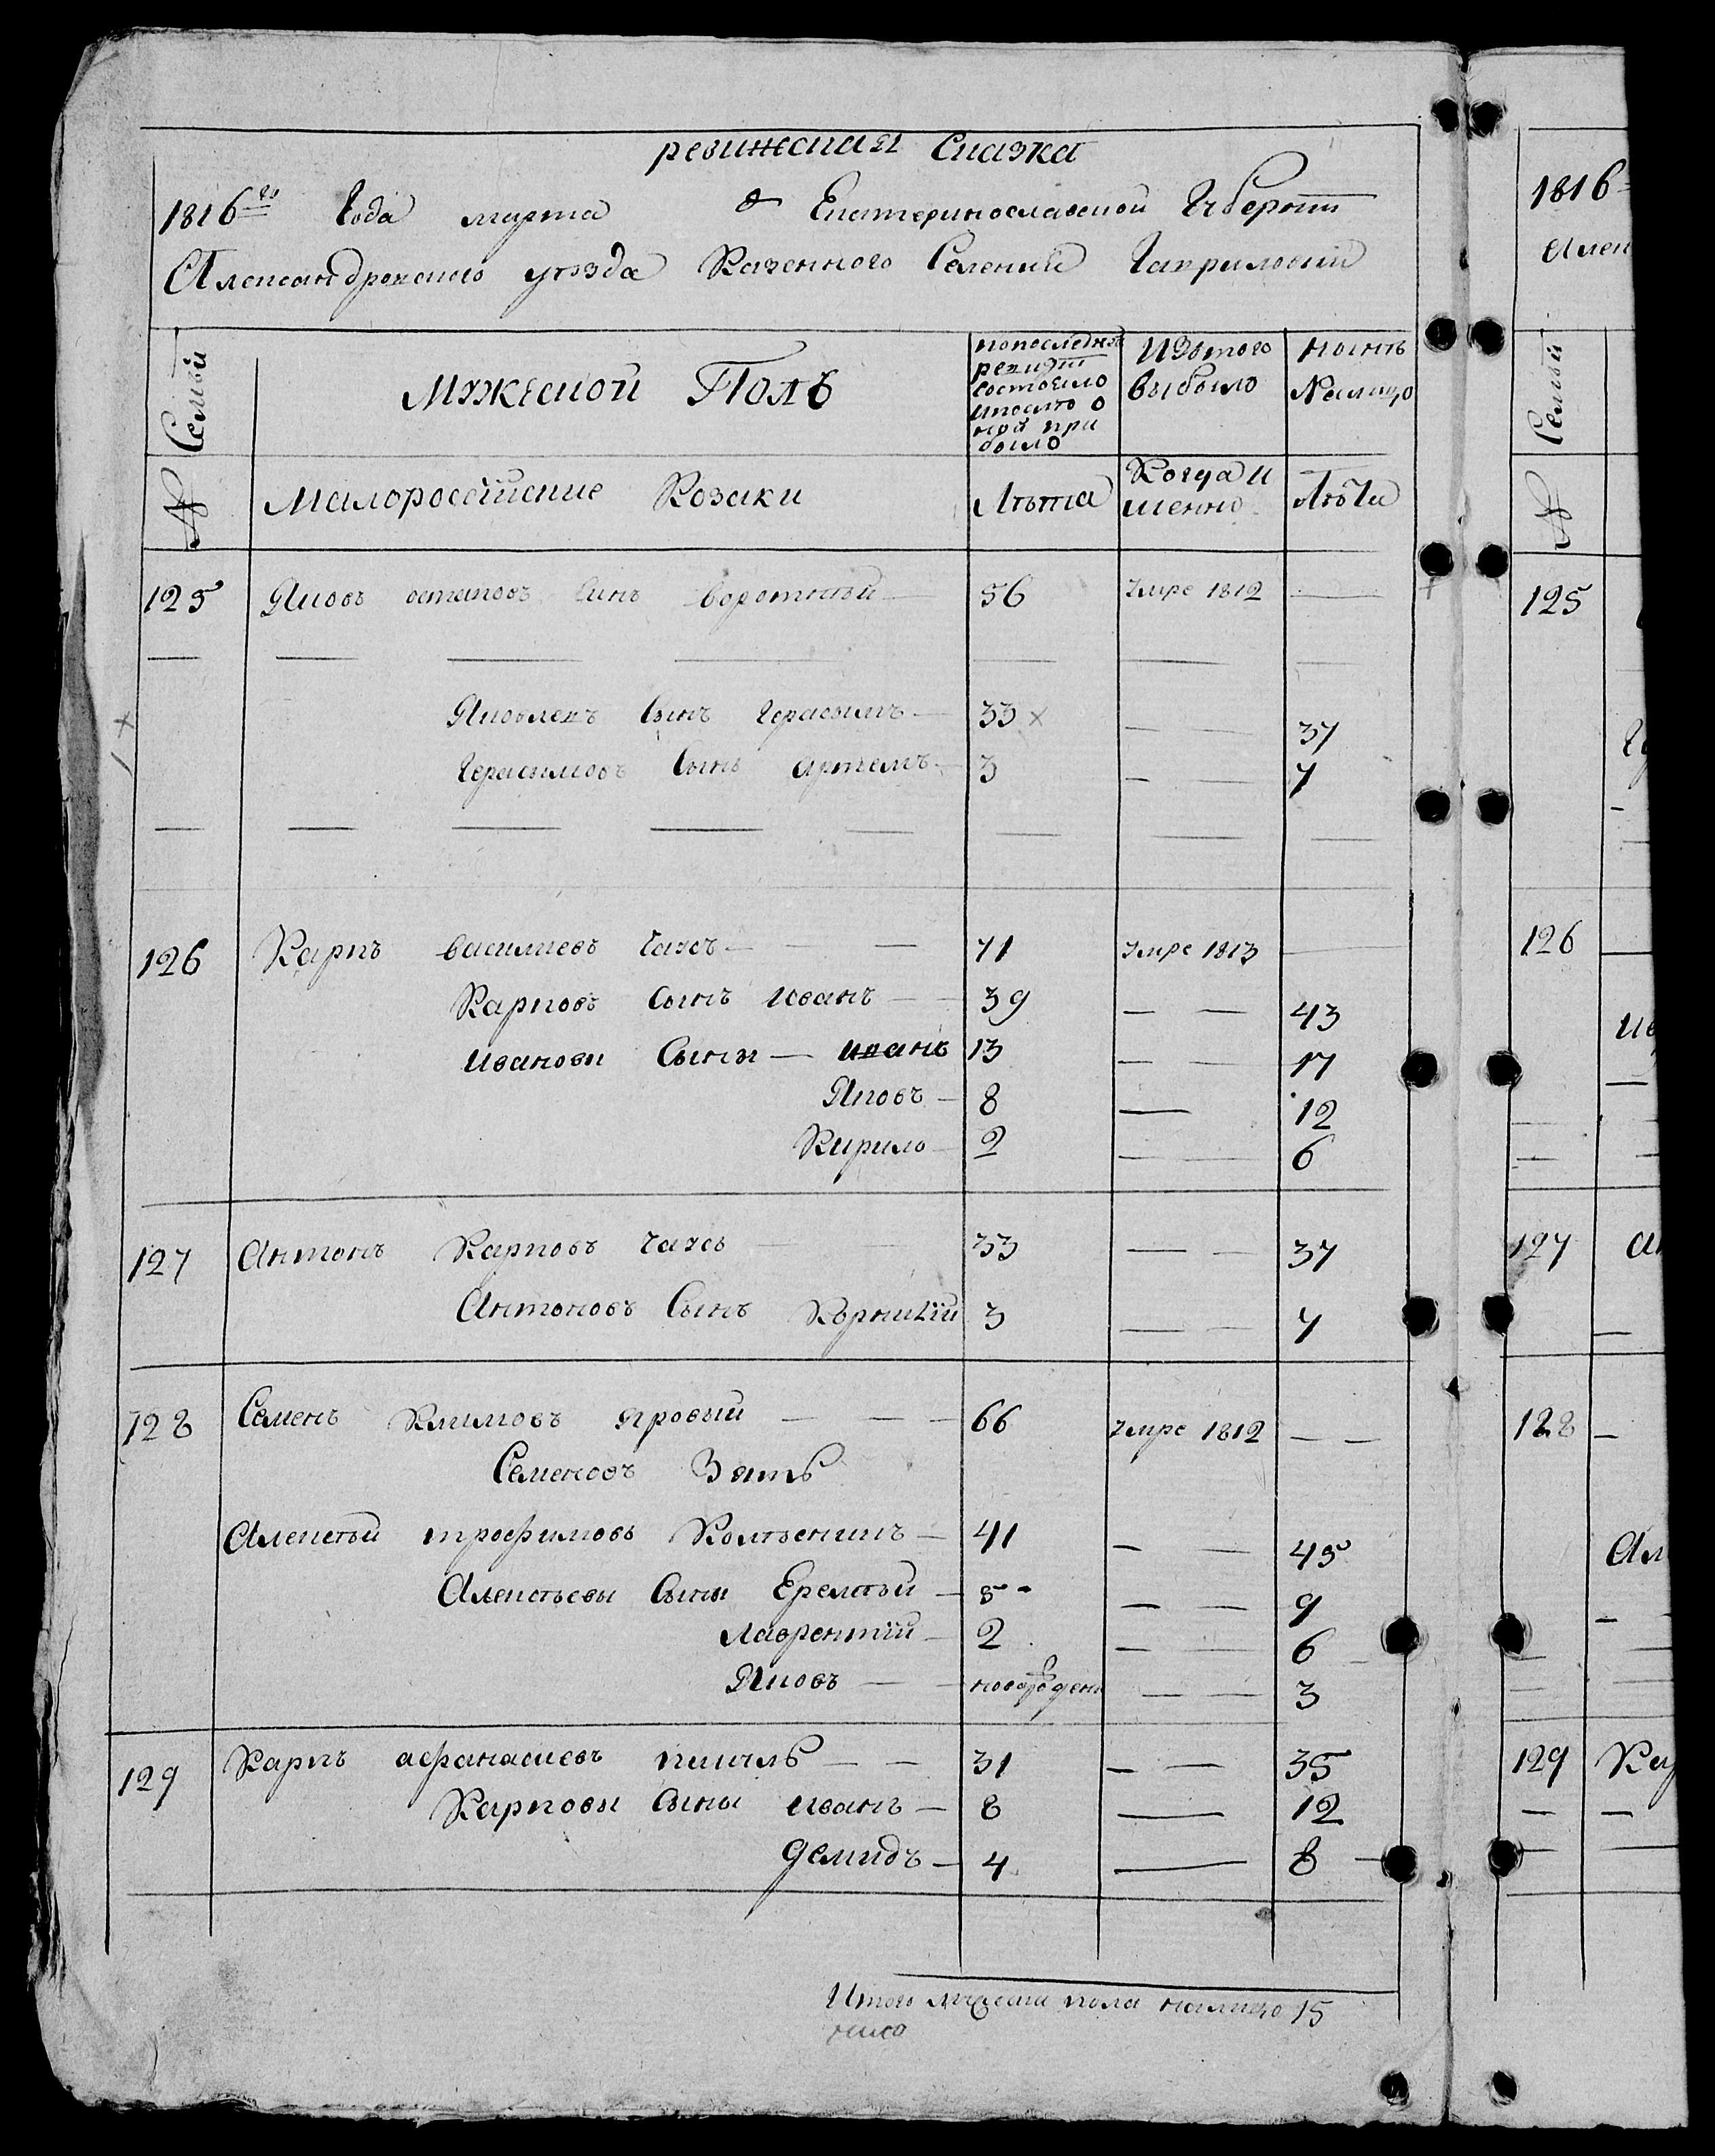 ревижская Сказка
1816го Года марта Екатеринославской Губернии
Александровскаго уезда Казенного Селения Гавриловки
№ Семьи
Мужеской Полъ
попоследней ревизии состояло ипосле оной при было
Изтого выбыло
ныне Налицо
Малороссийские Козаки
Лета
Когда и менно
Лѣта
125 Яковъ остаповъ Синъ воротній 56 Умре 1812
Яковлевъ Сынъ герасимъ 33 37
Герасимовъ Сынъ артемъ 3 7
126 Карпъ василиевъ 71 Умре 1813
Карповъ Сынъ иванъ 39 43
ивановы Сыны иванъ 13 17
Яковъ 8 12
Кирило 2 6
127 Антонъ Карповъ 33 37
Антоновъ Сынъ Корнилїй 3 7
128 Семенъ Климовъ яровый 66 Умре 1812
Семеновъ Зять
Алексѣй трофимовъ 41 45
Алексѣевы Сыны Еремѣй 5 9
Лаврентїй 2 6
Яковъ новорожденъ 3
129 Карпъ афанасиевъ 31 35
Карповы Сыны иванъ 8 12
Демидъ 4 8
Итого мужеска пола налицо 15
1816
Алек
Семьи
№
125
126
127
128
129